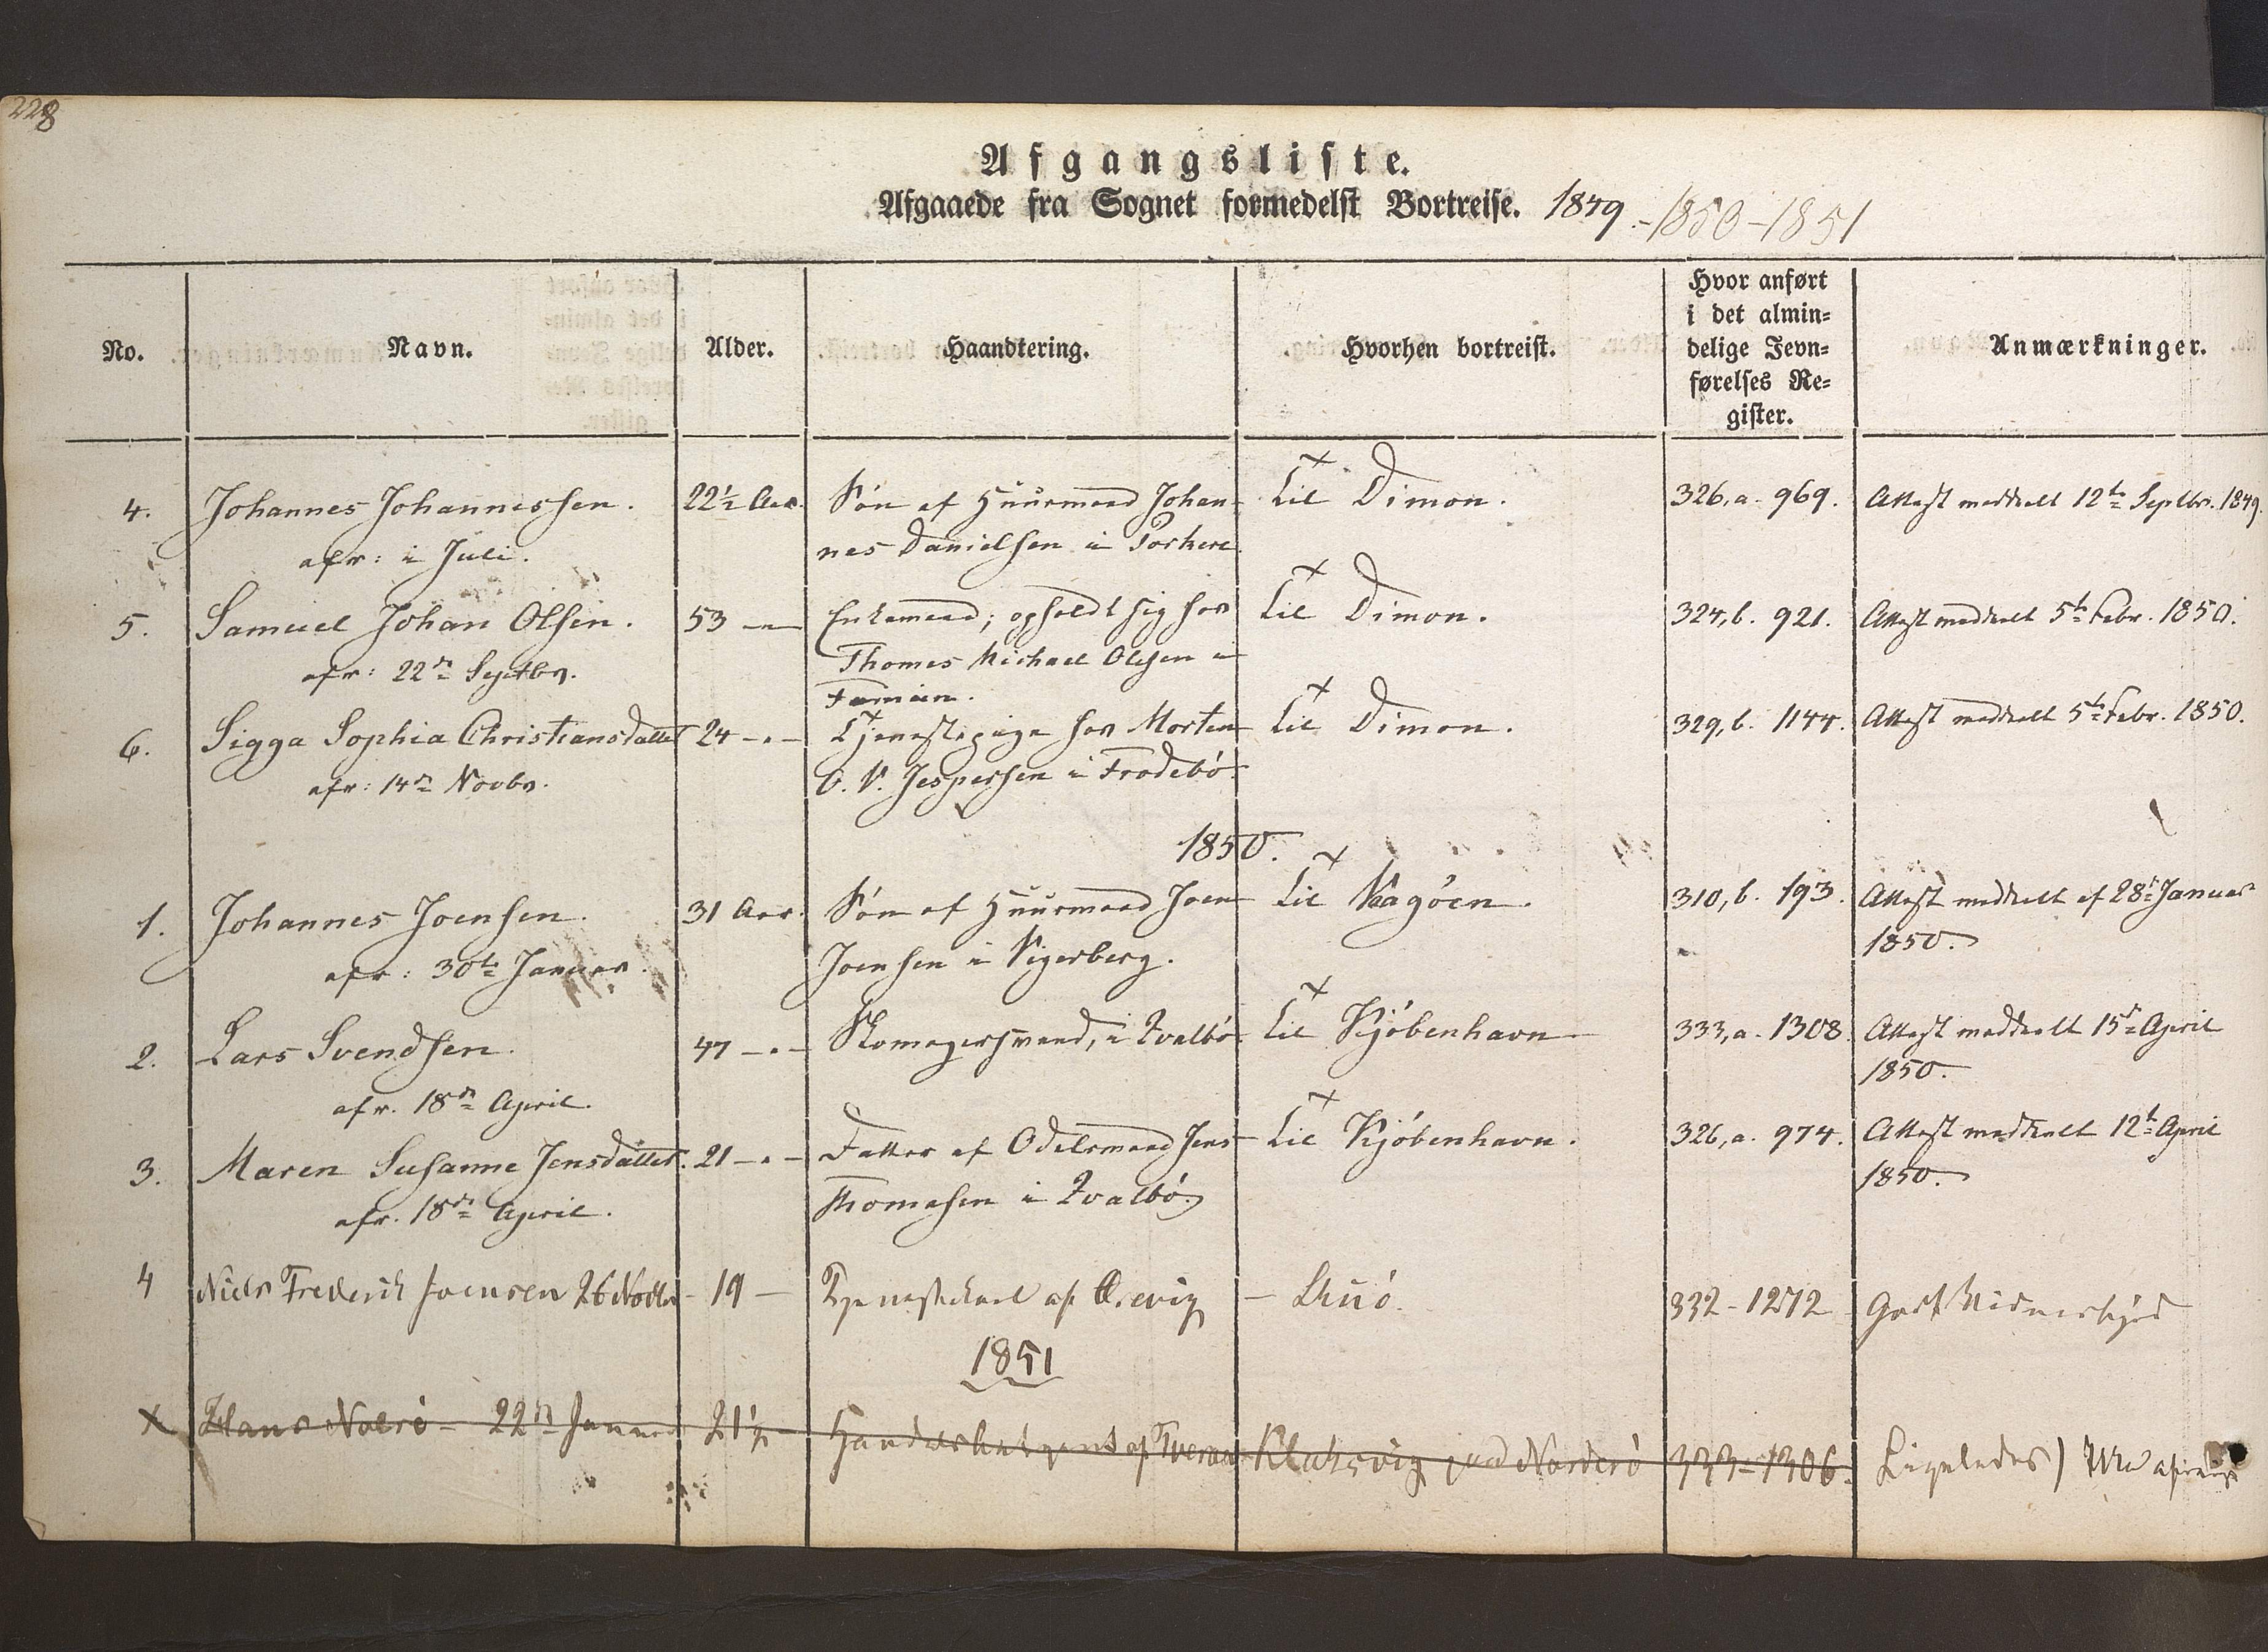 228
Afgangsliste.
Afgaaede fra Sognet formedelst Bortreise. 1849.-1850-1851
No. Navn. Alder. Haandtering. Hvorhen bortreist. Hvor anført i det almin= delige Jevn= førelses Re= gister. Anmærkninger.
4. Johannes Johannessen. 22½ Aar. Søn af Huusmand Johan- Til Dimon. 326,a. 969. Attest meddeelt 12te Septbr. 1849.
afr: i Juli. nes Danielsen i Porkere
5. Samuel Johan Olsen. 53 -"- Enkemand; opholdt sig hos Til Dimon. 324,b. 921. Attest meddeelt 5te Febr. 1850.
afr: 22de Septbr. Thomes Michael Olesen i
Famien.
6. Sigga Sophia Christiansdatter 24 -"- Tjenestepige hos Morten Til Dimon. 329,b. 1144. Attest meddeelt 5te Febr. 1850.
afr: 14de Novbr. O. V. Jespersen i Frodebö.
1850.
1. Johannes Joensen. 31 Aar. Søn af Huusmand Joen Til Vagöen. 310,b. 193. Attest meddeelt af 28de Januar
afr: 30te Januar. Joensen i Vigerberg. 1850.
2. Lars Svendsen. 47 -"- Skomagersvend, i Qvalbö. Til Kjöbenhavn 333,a. 1308. Attest meddeelt 15de April
afr. 18de April. 1850.
3. Maren Susanne Jensdatter. 21 -"- Datter af Odelsmand Jens Til Kjöbenhavn. 326,a. 974. Attest meddeelt 12te April
afr. 18de April. Thomasen i Qvalbö. 1850.
4 Niels Frederik Joensen 26 Novbr - 19 - Tjenestekarl af - Skuö. 332-1272
1851
x Hans Nolsö - 22de Januar 21½ Handelsbetjent af Tveraa Klaksvig paa Norderö 333-1306. Ligeledes)